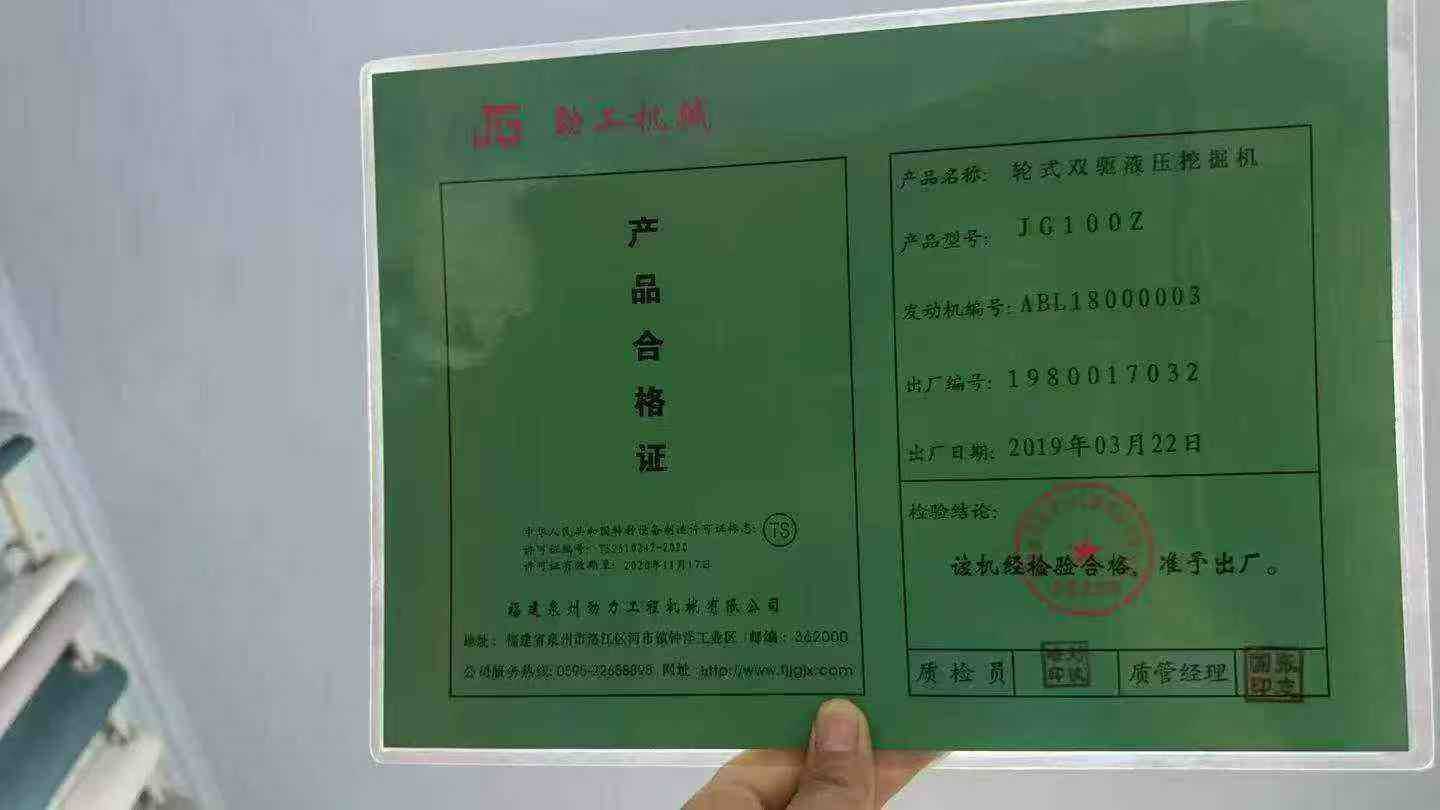 JG 劲工机械
产
品
合
格
证
中华人民共和国特种设备制造许可证标志: TS
许可证编号: TS2510247-2020
许可证有效期至: 2020年11月17日
福建泉州劲力工程机械有限公司
地址: 福建省泉州市洛江区河市镇钟洋工业区 邮编: 362000
公司服务热线: 0595-22688898 网址: http://www.fjjgjx.com
产品名称: 轮式双驱液压挖掘机
产品型号: JG100Z
发动机编号: ABL18000003
出厂编号: 1980017032
出厂日期: 2019年03月22日
检验结论:
该机经检验合格, 准予出厂。
质检员
质管经理